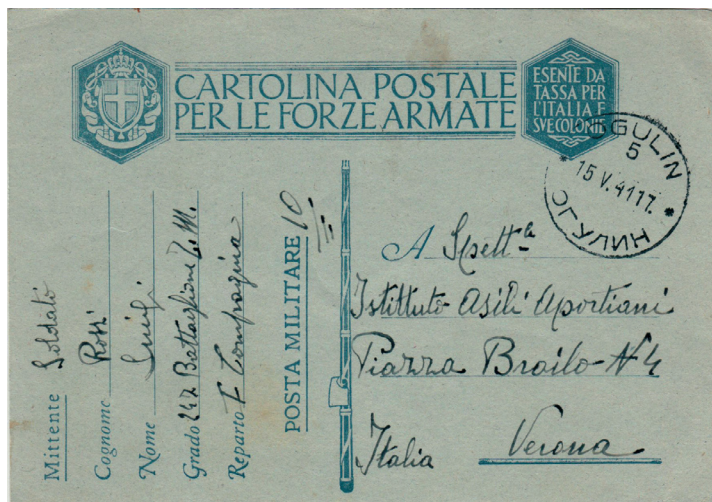 CARTOLINA POSTALE
PER LE FORZE ARMATE
ESENTE DA
TASSA PER
L'ITALIA E
SVE COLONIE
OGULIN
5
15 V. 41 17.
ОГУЛИН
Mittente Soldato
Cognome Rossi
Nome Luigi
Grado 242 Battaglione T.M.
Reparto I Compagnia
POSTA MILITARE 10
A Spett-a
Istittuto Asili Aportiani
Piazza Brailo - N 4
Verona
Italia